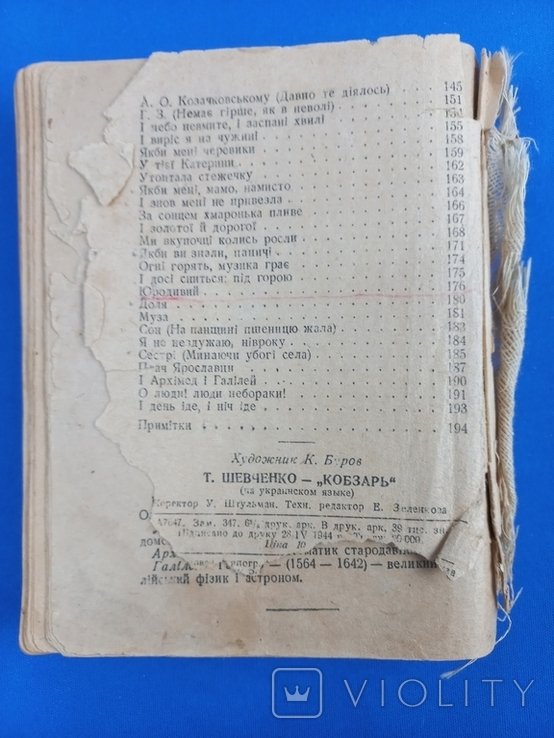 А. О. Козачковському (Давно те діялось) 145
Г. З. (Немає гірше, як в неволі) 151
І небо невмите, і заспані хвилі 154
І виріс я на чужині 155
Якби мені черевики 158
У тієї Катерини 159
Утоптала стежечку 162
Якби мені, мамо, намисто 163
І знов мені не привезла 164
За сонцем хмаронька пливе 166
І золотої й дорогої 167
Ми вкупочці колись росли 168
Якби ви знали, паничі 171
Огні горять, музика грає 174
І досі сниться: під горою 175
Юродивий 176
Доля 180
Муза 181
Сон (На панщині пшеницю жала) 183
Я не нездужаю, нівроку 184
Сестрі (Минаючи убогі села) 185
Плач Ярославни 187
І Архімед і Галілей 190
О люди! люди небораки! 191
І день іде, і ніч іде 193
Примітки 194
Художник К. Буров
Т. ШЕВЧЕНКО — „КОБЗАРЬ"
(на украинском языке)
Коректор У. Штульман. Техн. редактор Е. Зеленкова
О
А7647. Зам. 347. 6¼ друк. арк. В друк. арк. 39 тис. зн.
Підписано до друку 28.IV 1944 000.
домо Ціна 10
Арх матик стародавн
Галіл (1564 — 1642) — великий
лійський фізик і астроном.
VIOLITY